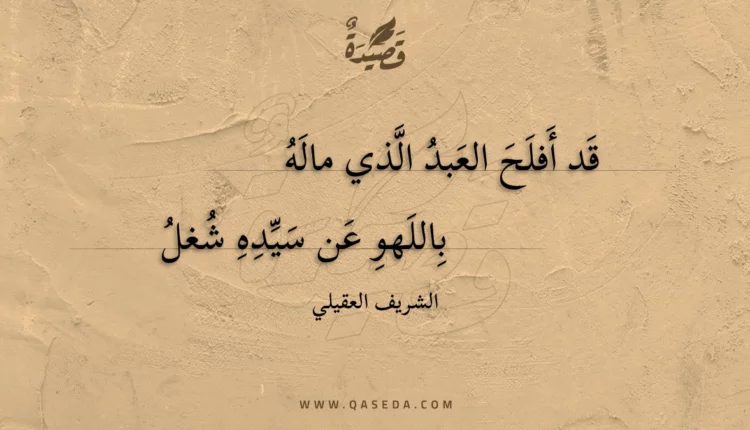 قَصِيدَةٌ
قَد أَفلَحَ العَبدُ الَّذي مالَهُ
بِاللَهوِ عَن سَيِّدِهِ شُغلُ
الشريف العقيلي
WWW.QASEDA.COM